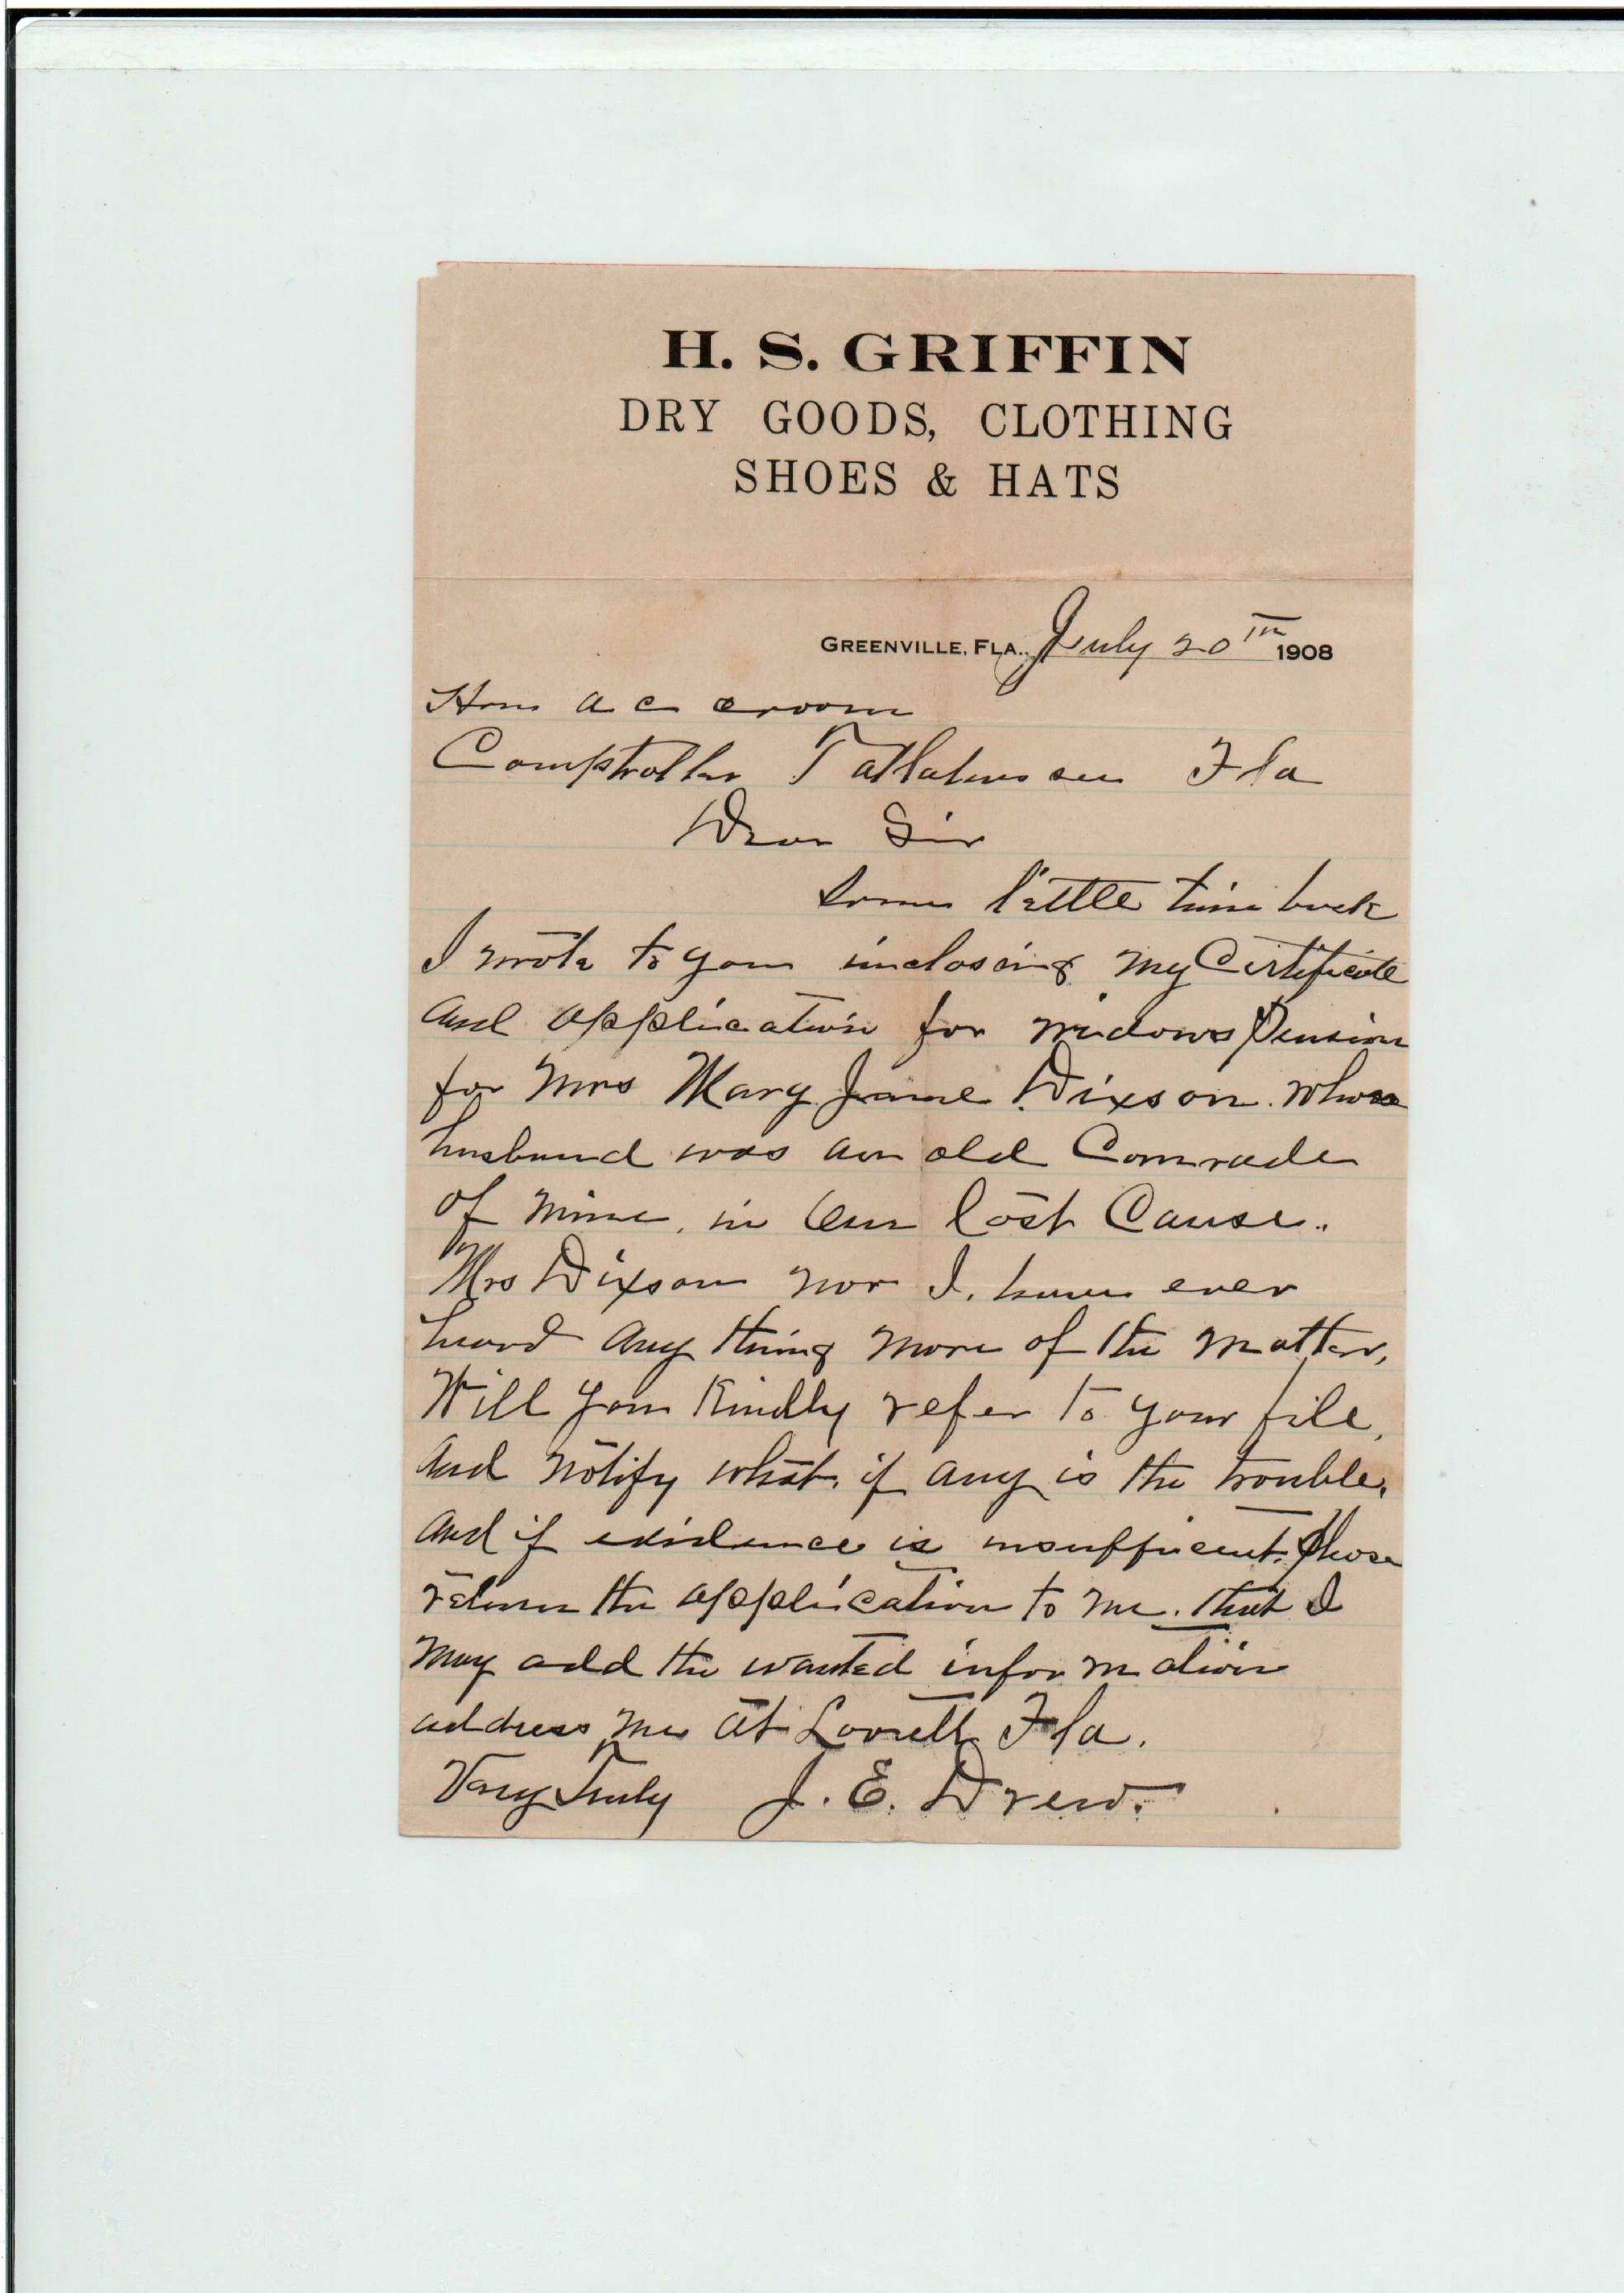 H. S. GRIFFIN
DRY GOODS, CLOTHING
SHOES & HATS
GREENVILLE, FLA., July 20th 1908
Hon A C Croom
Comptroller Tallahassee Fla
Dear Sir
Some little time back
I wrote to you inclosing my Certificate
and application for widows Pension
for Mrs Mary Jane Dixson. whose
husband was an old Comrade
of mine, in Our lost Cause.
Mrs Dixson nor I. have ever
heard any thing more of the matter,
Will you Kindly refer to your file,
and notify what, if any is the trouble,
and if evidence is insufficent. Please
return the application to me. that I
may add the wanted information
address me at Lovett Fla.
Very Truly J. E. Drew.